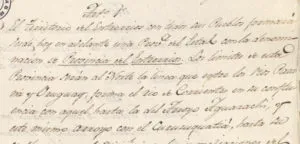 El Territorio de Entrerrios con todos sus Pueblos formará
desde hoy en adelante una Prov.ª del Estado con la denomi-
nacion de Provincia de Entrerrios. Los limites de esta
Provincia serán al Norte la linea que entre los Rios Parana
y Uruguay, forma el rio de Corrientes en su conflu-
encia con aquel hasta la del Arroyo Aguarachi, y
este mismo arroyo con el Curuzuquatiá, hasta